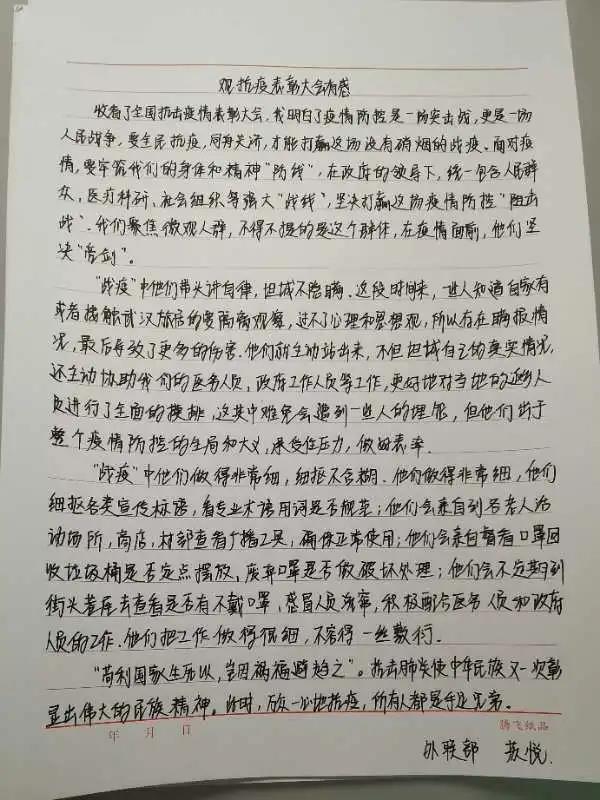 观抗疫表彰大会有感
收看了全国抗击疫情表彰大会,我明白了疫情防控是一场突击战,更是一场
人民战争,要全民抗疫,同舟共济,才能打赢这场没有硝烟的战疫。面对疫
情,要牢筑我们的身体和精神“防线”,在政府的领导下,统一包含人民群
众,医疗科研、社会组织等强大“战线”,坚决打赢这场疫情防控“阻击
战”。我们聚焦微观人群,不得不提的是这个群体,在疫情面前,他们坚
决“亮剑”。
“战疫”中他们带头讲自律,坦诚不隐瞒。这段时间来,一些人知道自家有
或者接触武汉旅居的要隔离观察,过不了心理和思想观,所以存在瞒报情
况,最后导致了更多的伤害。他们就主动站出来,不但坦诚自己的真实情况,
还主动协助我们的医务人员,政府工作人员等工作,更好地对当地的返乡人
员进行了全面的摸排,这其中难免会遇到一些人的埋怨,但他们出于
整个疫情防控的全局和大义,承受住压力,做好表率。
“战疫”中他们做得非常细,细抠不含糊。他们做得非常细,他们
细抠各类宣传标语,看专业术语用词是否规范;他们会亲自到各老人活
动场所,商店,村部查看广播工具,确保正常使用;他们会亲自督看口罩回
收垃圾桶是否定点摆放,废弃口罩是否做破坏处理;他们会不定期到
街头巷尾去查看是否有不戴口罩,感冒人员流窜,积极配合医务人员和政府
人员的工作。他们把工作做得很细,不容得一丝敷衍。
“苟利国家生死以,岂因祸福避趋之”。抗击肺炎使中华民族又一次彰
显出伟大的民族精神。此时,万众一心地抗疫,所有人都是手足兄弟。
年 月 日 腾飞纸品
外联部 苏悦.